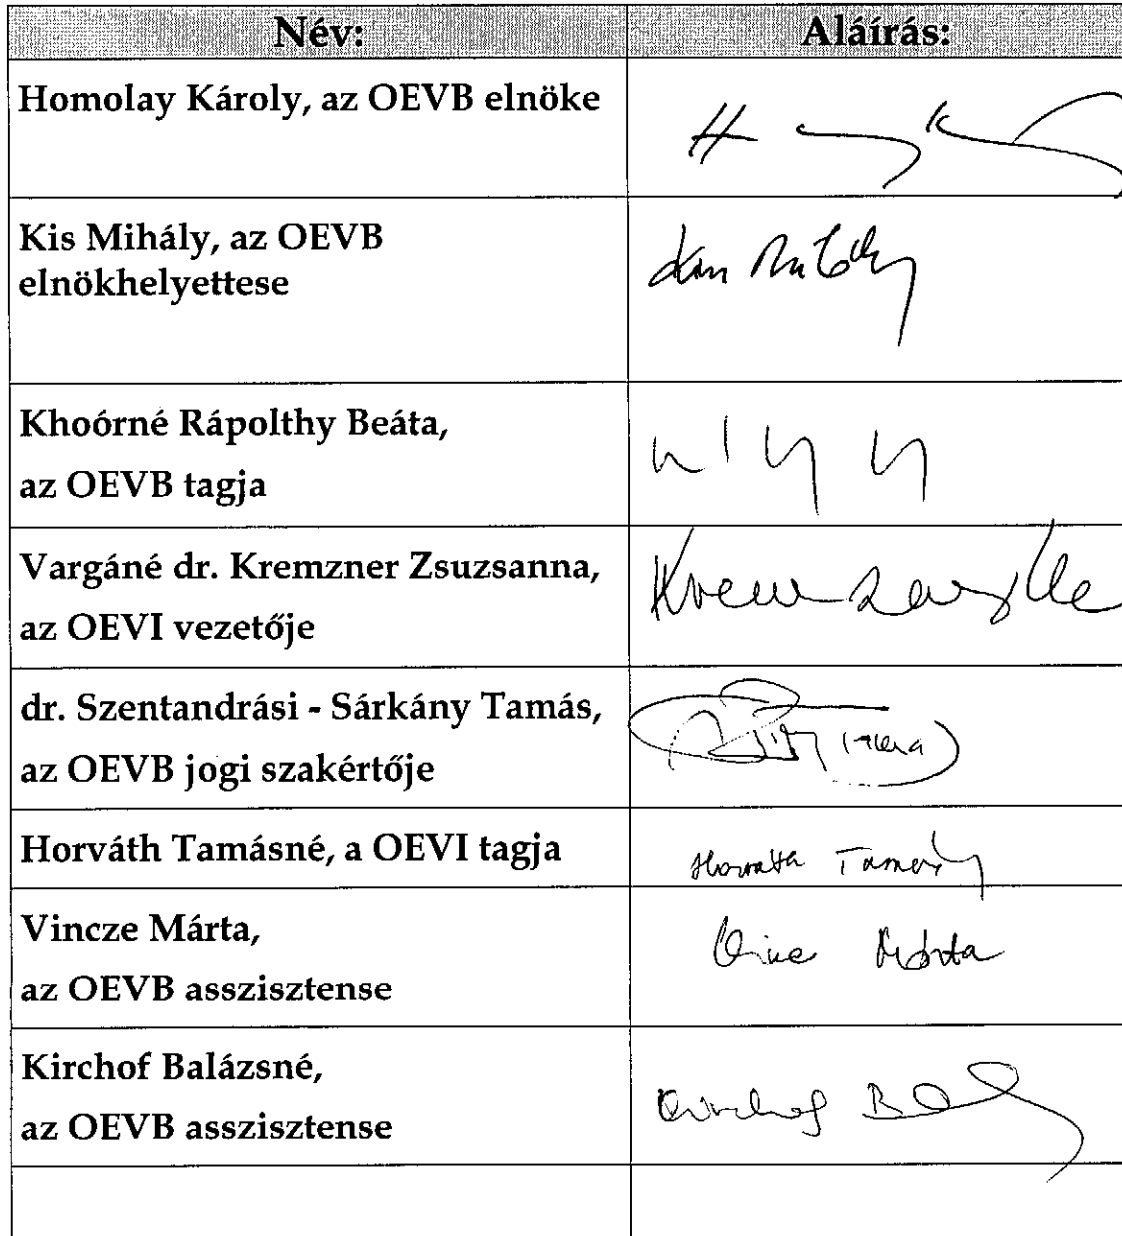 Név: Aláírás:
Homolay Károly, az OEVB elnöke
Kis Mihály, az OEVB
elnökhelyettese
Khoórné Rápolthy Beáta,
az OEVB tagja
Vargáné dr. Kremzner Zsuzsanna,
az OEVI vezetője
dr. Szentandrási - Sárkány Tamás,
az OEVB jogi szakértője
Horváth Tamásné, a OEVI tagja
Vincze Márta,
az OEVB asszisztense
Kirchof Balázsné,
az OEVB asszisztense